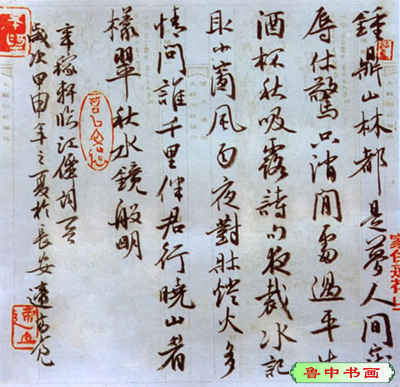 鍾鼎山林都是夢人間寵
辱休驚只消閒處過平生
酒杯秋吸露詩句夜裁冰記
取小窗風雨夜對牀燈火多
情問誰千里伴君行曉山眉
樣翠秋水鏡般明
辛稼軒臨江僊詞
歲次甲申年之夏於長安
鲁中书画